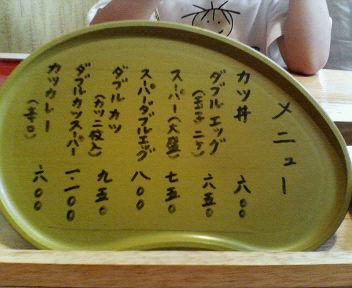 メニュー
カツ丼 六〇〇
ダブルエッグ(玉子二ケ) 六五〇
スーパー(大盛) 七五〇
スーパーダブルエッグ 八〇〇
ダブルカツ(カツ二枚入) 九五〇
ダブルカツスーパー 一.一〇〇
カツカレー(辛口) 六〇〇